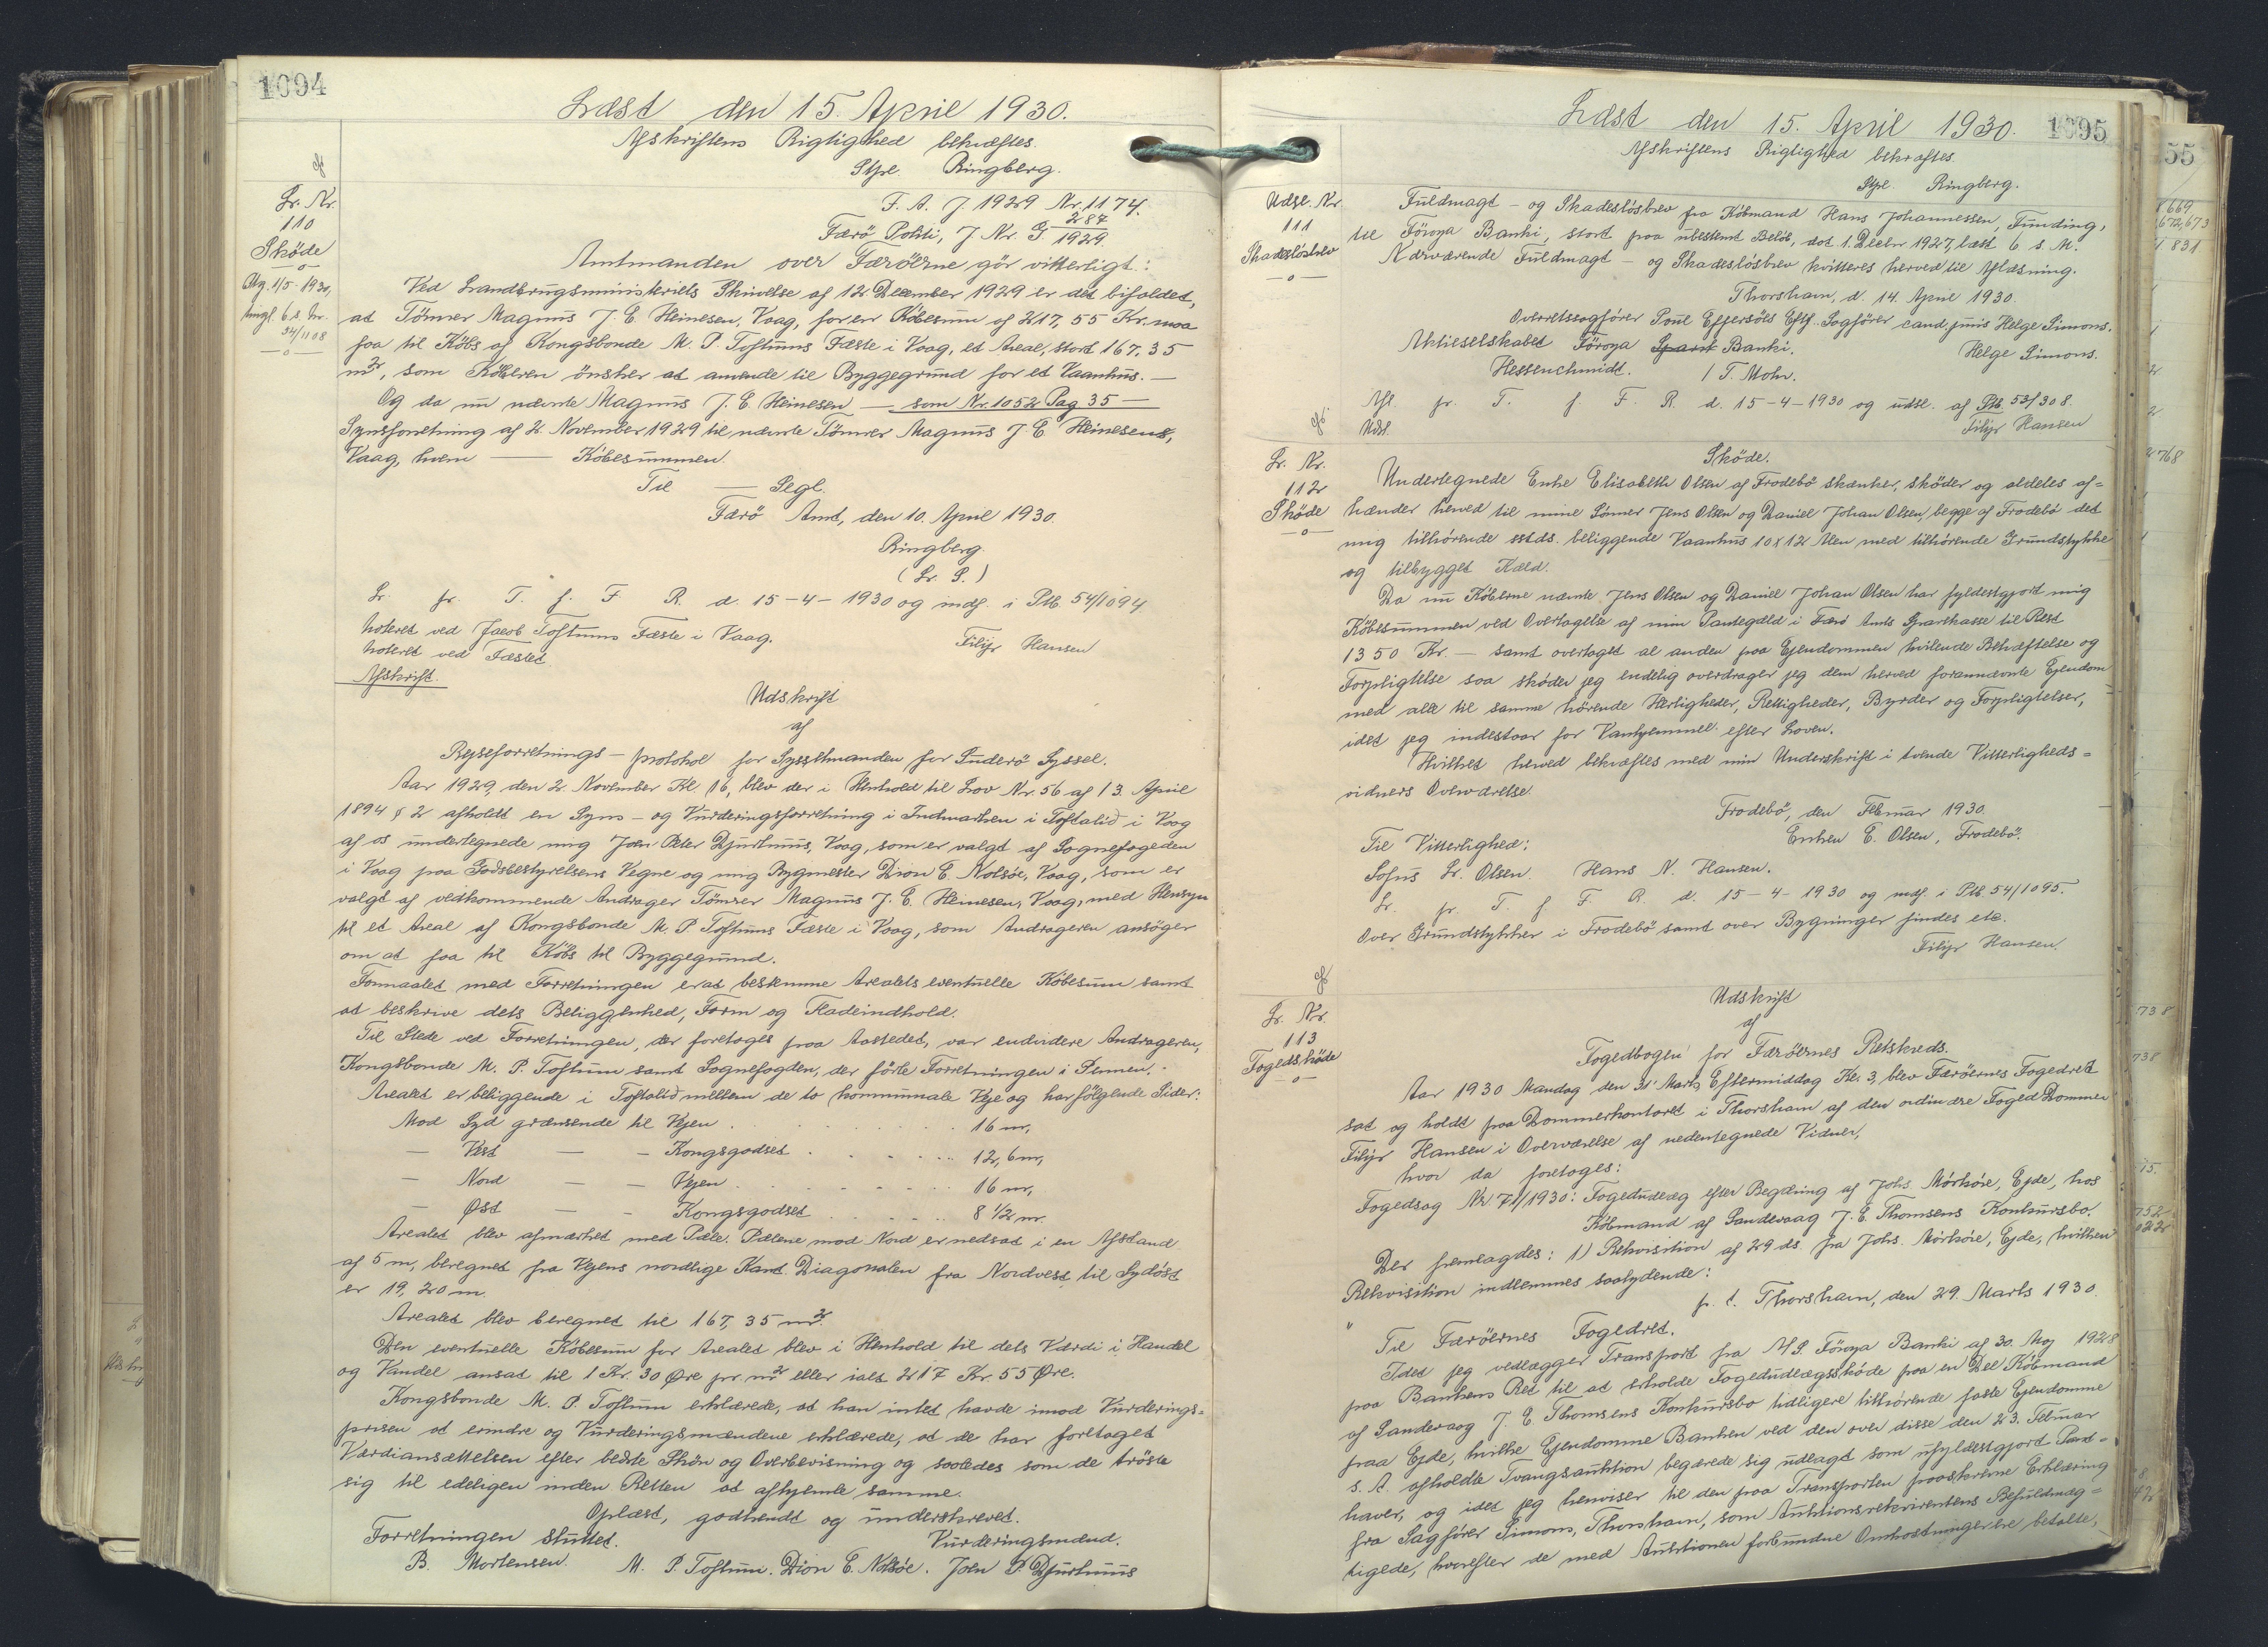 1094
Læst den 15. April 1930.
Afskriftens Rigtighed bekræftes.
Stpl. Ringberg.
Lr. Nr.
110
Sköde
F. A. J. 1929 Nr. 1174.
Færö Politi, J. Nr. G 287/1929.
Amtmanden over Færöerne gör vitterligt:
Ved Landbrugsministeriets Skrivelse af 12. December 1929 er det bifaldet,
at Tömrer Magnus J. E. Heinesen, Vaag, for en Köbesum af 217,55 Kr. maa
faa til Köbs af Kongsbonde M. P. Toftums Fæste i Vaag, et Areal, stort 167,35
m², som Köberen önsker at anvende til Byggegrund for et Vaanhus. —
Og da nu nævnte Magnus J. E. Heinesen — som Nr. 1052 Pag 35 —
Synsforretning af 2. November 1929 til nævnte Tömrer Magnus J. E. Heinesens,
Vaag, hvem — Köbesummen.
Til — Segl.
Færö Amt, den 10. April 1930.
Ringberg.
(L. S.)
Lr. fr. T. f. F. R. d. 15-4-1930 og indf. i Ptb. 54/1094
Noteret ved Jacob Toftums Fæste i Vaag.
Noteret ved Fæstet.
Filip Hansen
Afskrift.
Udskrift
af
Rejseforretnings-protokol for Sysselmanden for Suderö Syssel.
Aar 1929, den 2. November Kl. 16, blev der i Henhold til Lov Nr. 56 af 13. April
1894 § 2 afholdt en Syns- og Vurderingsforretning i Indmarken i Toftalid i Vaag
af os undertegnede mig Joen Peter Djurhuus, Vaag, som er valgt af Sognefogeden
i Vaag paa Godsbestyrelsens Vegne og mig Bygmester Dion E. Nolsöe, Vaag, som er
valgt af vedkommende Andrager Tömrer Magnus J. E. Heinesen, Vaag, med Hensyn
til et Areal af Kongsbonde M. P. Toftums Fæste i Vaag, som Andrageren ansöger
om at faa til Köbs til Byggegrund.
Formaalet med Forretningen er at bestemme Arealets eventuelle Köbesum samt
at beskrive dets Beliggenhed, Form og Fladeindhold.
Til Stede ved Forretningen, der foretoges paa Aastedet, var endvidere Andrageren,
Kongsbonde M. P. Toftum samt Sognefogden, der förte Forretningen i Pennen.
Arealet er beliggende i Toftalid mellem de to kommunale Veje og har fölgende Sider:
Mod Syd grænsende til Vejen . . . 16 m,
— Vest — — Kongsgodset . . . 12,6 m,
— Nord — — Vejen . . . 16 m,
— Øst — — Kongsgodset . . . 8 1/2 m.
Arealet blev afmærket med Pæle. Pælene mod Nord er nedsat i en Afstand
af 5 m, beregnet fra Vejens nordlige Kant. Diagonalen fra Nordvest til Sydöst
er 19,20 m.
Arealet blev beregnet til 167,35 m².
Den eventuelle Köbesum for Arealet blev i Henhold til dets Værdi i Handel
og Vandel ansat til 1 Kr. 30 Øre pr. m² eller ialt 217 Kr. 55 Øre.
Kongsbonde M. P. Toftum erklærede, at han intet havde imod Vurderings=
prisen at erindre og Vurderingsmændene erklærede, at de har foretaget
Værdiansættelsen efter bedste Skön og Overbevisning og saaledes som de tröste
sig til edeligen inden Retten at afhjemle samme.
Oplæst, godkendt og underskrevet.
Forretningen sluttet. Vurderingsmænd.
B. Mortensen. M. P. Toftum. Dion E. Nolsöe. Joen P. Djurhuus
Læst den 15. April 1930.
1095
Afskriftens Rigtighed bekræftes.
Stpl. Ringberg.
Udsl. Nr.
111
Skadeslösbrev
Fuldmagt- og Skadeslösbrev fra Köbmand Hans Johannessen, Funding,
til Föroya Banki, stort paa ubestemt Belöb, dat. 1. Decbr. 1927, læst 6. s. M.
Nærværende Fuldmagt- og Skadeslösbrev kvitteres herved til Aflæsning.
Thorshavn, d. 14. April 1930.
Overretssagförer Poul Effersöes Eftf. Sagförer cand. juris Helge Simons.
Aktieselskabet Föroya Banki. Helge Simons.
Hessenschmidt. / T. Mohr.
Afl. fr. T. f. F. R. d. 15-4-1930 og udsl. af Ptb. 53/308.
Udsl. Filip Hansen
Lr. Nr.
112
Sköde
Sköde.
Undertegnede Enke Elisabeth Olsen af Frodebö skænker, sköder og aldeles af=
hænder herved til mine Sönner Jens Olsen og Daniel Johan Olsen, begge af Frodebö det
mig tilhörende sstds. beliggende Vaanhus 10 x 12 Alen med tilhörende Grundstykke
og tilbygget Kæld.
Da nu Köberne nævnte Jens Olsen og Daniel Johan Olsen har fyldestgjort mig
Köbesummen ved Overtagelse af min Pantegæld i Færö Amts Sparekasse til Rest
1350 Kr. — samt overtaget al anden paa Ejendommen hvilende Behæftelse og
Forpligtelse saa sköder jeg endelig overdrager jeg dem herved forannævnte Ejendom
med alle til samme hörende Herligheder, Rettigheder, Byrder og Forpligtelser,
idet jeg indestaar for Vanhjemmel efter Loven.
Hvilket herved bekræftes med min Underskrift i tvende Vitterligheds=
vidners Overværelse.
Frodebö, den Februar 1930.
Enken E. Olsen, Frodebö.
Til Vitterlighed:
Sofus Lr. Olsen. Hans N. Hansen.
Lr. fr. T. f. F. R. d. 15-4-1930 og indf. i Ptb. 54/1095.
Over Grundstykker i Frodebö samt over Bygninger findes etc.
Filip Hansen.
Lr. Nr.
113
Fogedsköde
Udskrift
af
Fogedbogen for Færöernes Retskreds.
Aar 1930 Mandag den 31' Marts Eftermiddag Kl. 3, blev Færöernes Fogedret
sat og holdt paa Dommerkontoret i Thorshavn af den ordinære Foged Dommer
Filip Hansen i Overværelse af nedentegnede Vidner,
hvor da foretoges:
Fogedsag Nr. 71/1930: Fogedudlæg efter Begæring af Johs. Mörköre, Ejde, hos
Köbmand af Sandevaag J. E. Thomsens Konkursbo.
Der fremlagdes: 1) Rekvisition af 29 ds. fra Johs. Mörköre, Ejde, hvilken
Rekvisition indlemmes saalydende:
p. t. Thorshavn, den 29. Marts 1930.
" Til Færöernes Fogedret.
Idet jeg vedlægger Transport fra A/S. Föroya Banki af 30. Maj 1928
paa Bankens Ret til at erholde Fogedudlægsskøde paa en Del Köbmand
af Sandevaag J. E. Thomsens Konkursbo tidligere tilhörende faste Ejendomme
paa Ejde, hvilke Ejendomme Banken ved den over disse den 23. Februar
s. A. afholdte Tvangsauktion begærede sig udlagt som ufyldestgjort Pant=
haver, og idet jeg henviser til den paa Transporten paaskrevne Erklæring
fra Sagförer Simons, Thorshavn, som Auktionsrekvirentens Befuldmæg=
tigede, hvorefter de med Auktionen forbundne Omkostninger ere betalte,